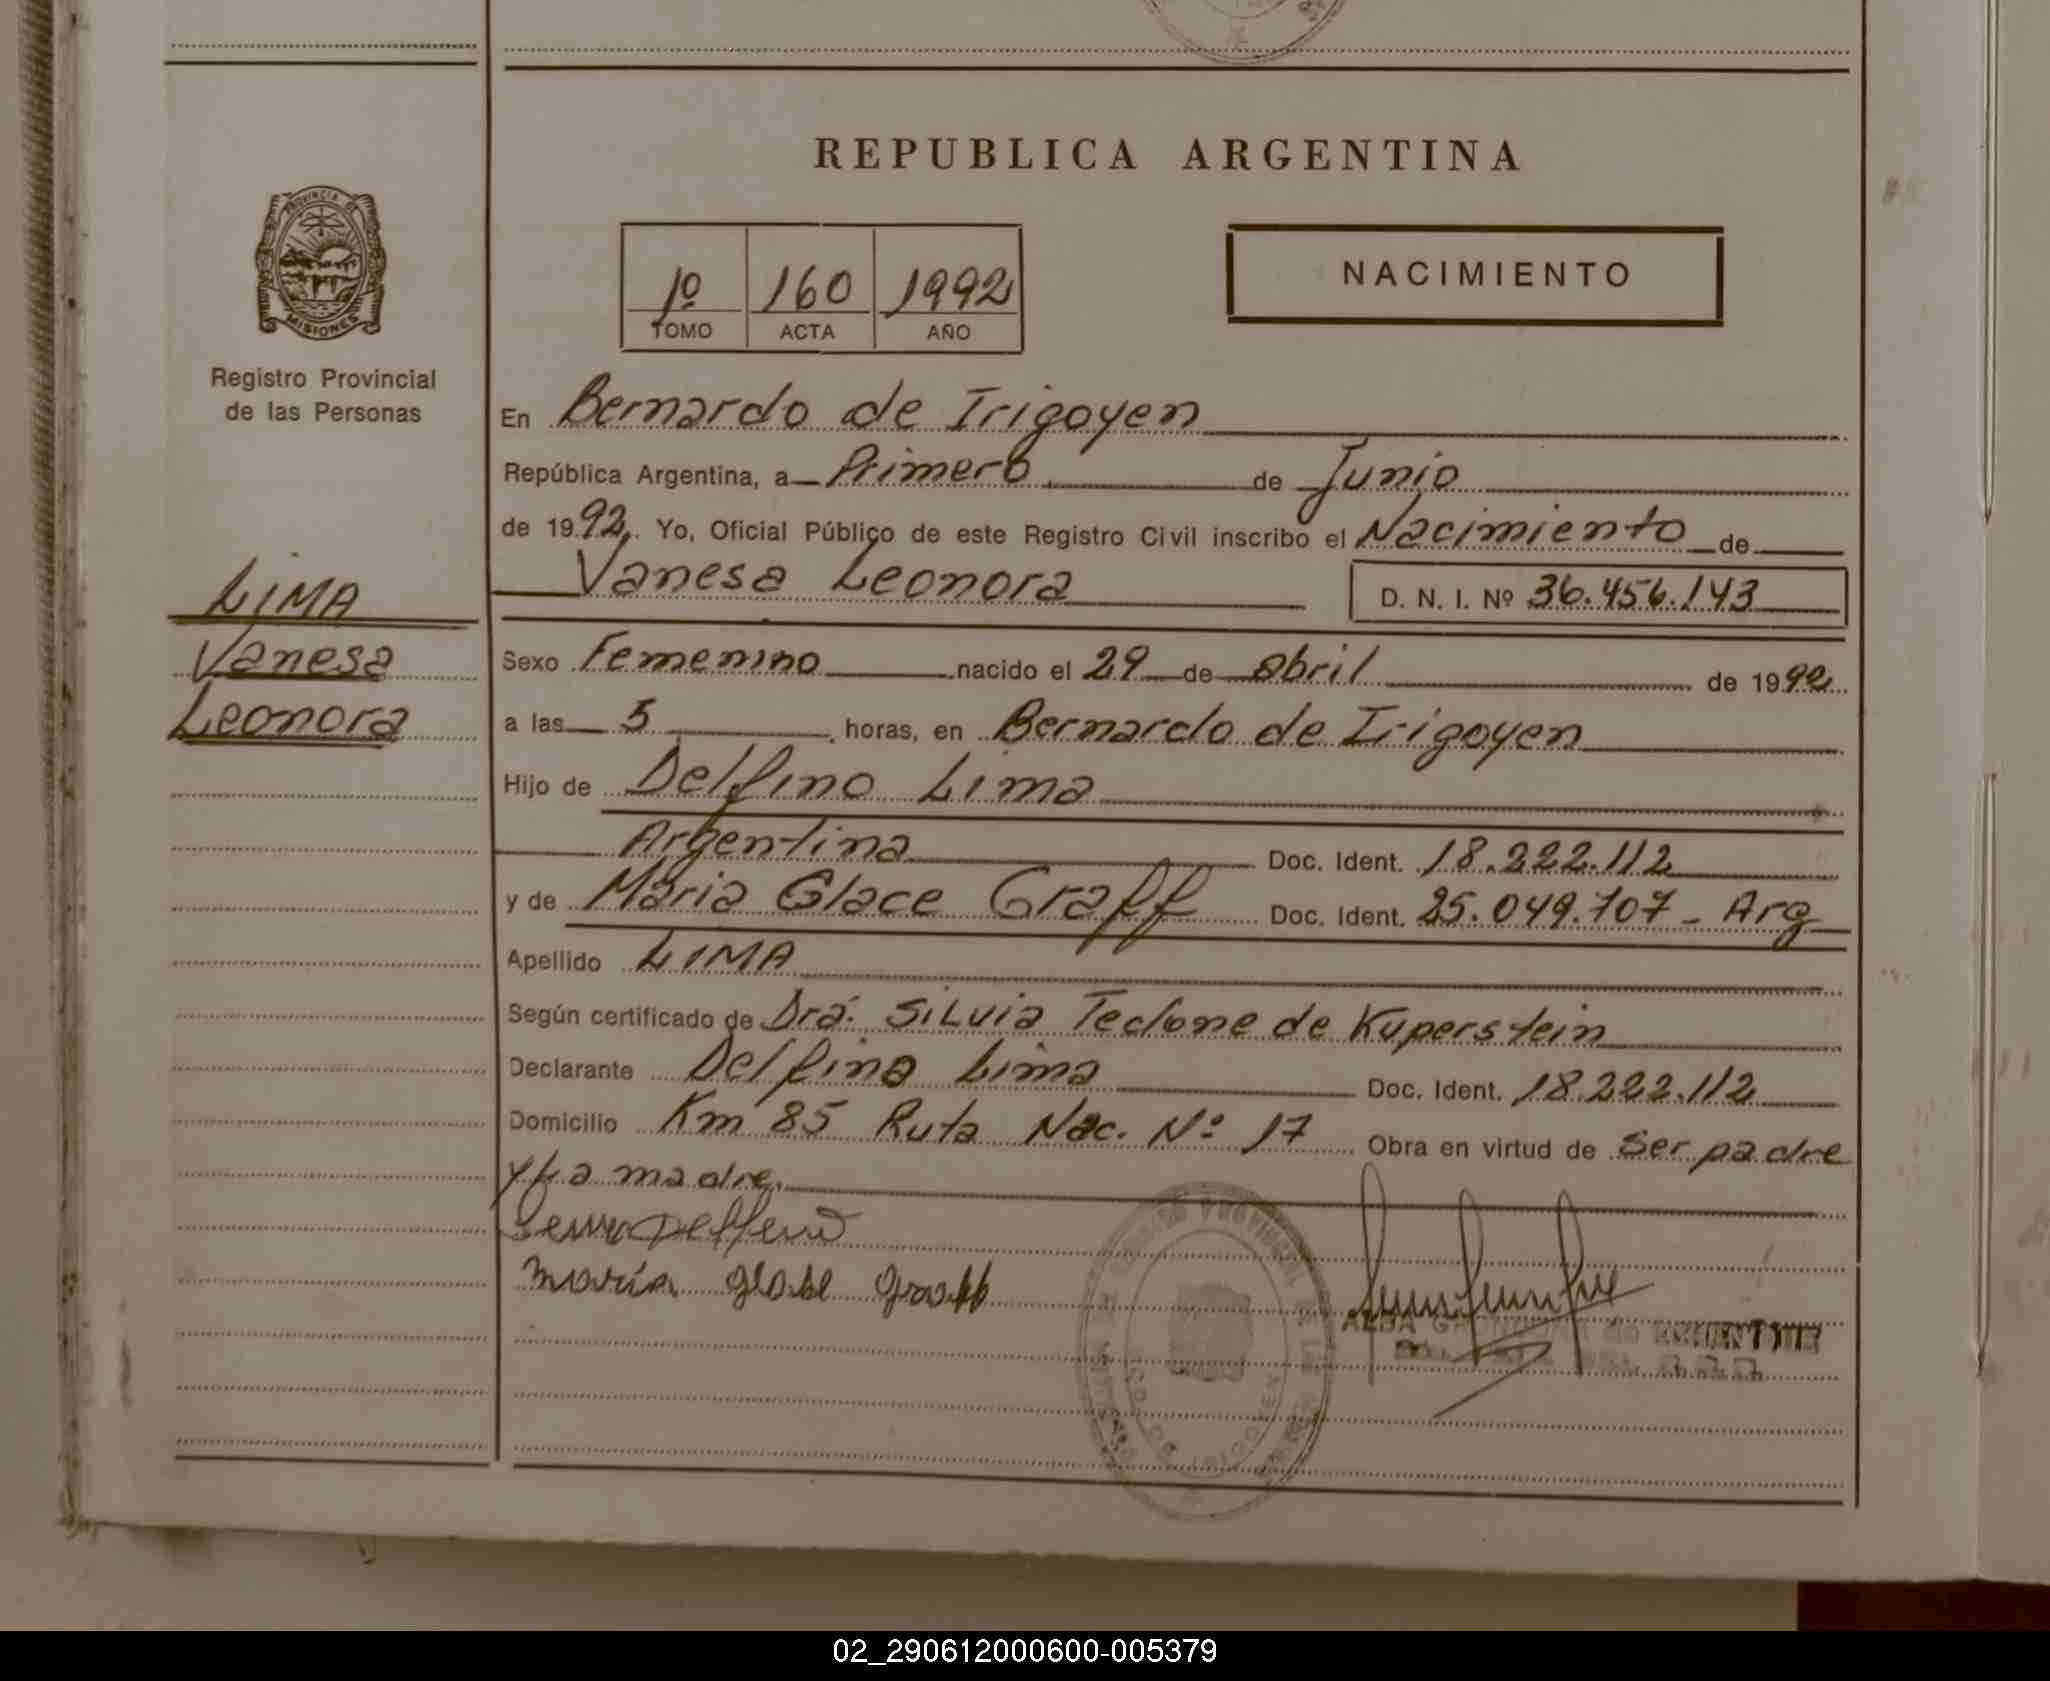 REPUBLICA ARGENTINA
PROVINCIA DE
MISIONES
Registro Provincial
de las Personas
1º 160 1992
TOMO ACTA AÑO
NACIMIENTO
LIMA
Vanesa
Leonora
En Bernardo de Irigoyen
República Argentina, a Primero de Junio
de 1992. Yo, Oficial Público de este Registro Civil inscribo el Nacimiento de
Vanesa Leonora D. N. I. Nº 36.456.143
Sexo Femenino nacido el 29 de abril de 1992
a las 5 horas, en Bernardo de Irigoyen
Hijo de Delfino Lima
Argentina Doc. Ident. 18.222.112
y de Maria Glace Graff Doc. Ident. 25.049.107 - Arg
Apellido LIMA
Según certificado de Dra: SiLvia Teclone de Kuperstein
Declarante Delfino Lima Doc. Ident. 18.222.112
Domicilio Km 85 Ruta Nac. Nº 17 Obra en virtud de Ser padre
y La madre.
María Graff
ALBA de
02_290612000600-005379